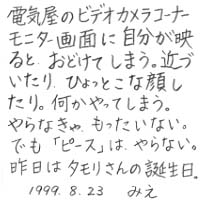 電気屋のビデオカメラコーナー
モニター画面に自分が映
ると、おどけてしまう。近づ
いたり、ひょっとこな顔し
たり。何かやってしまう。
やらなきゃ、もったいない。
でも「ピース」は、やらない。
昨日はタモリさんの誕生日。
1999.8.23 みえ